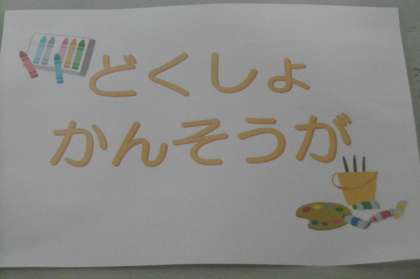 どくしょ
かんそうが